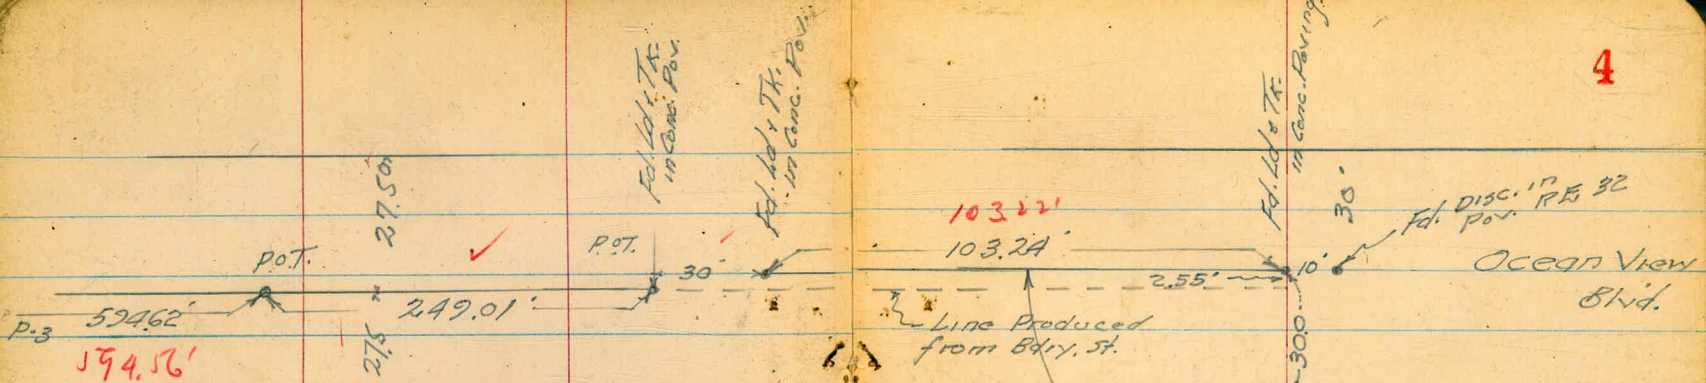 4
Fd. Ld & Tk.
in Conc. Pav.
Fd. Ld & Tk.
in Conc. Pav.
Fd. Ld & Tk.
in Conc. Paving.
27.50
30'
Fd. Disc. in
Pav. RE 32
103.22'
103.24'
P.O.T.
P.O.T.
30'
2.55'
10'
Ocean View
Blvd.
P-3
594.62'
249.01'
Line Produced
from Bdry. St.
594.56'
27.5
30.0